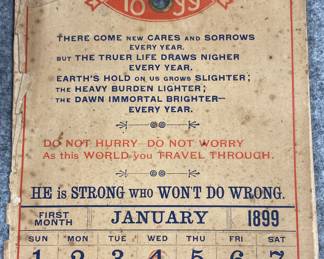 1899
THERE COME NEW CARES AND SORROWS
EVERY YEAR.
BUT THE TRUER LIFE DRAWS NIGHER
EVERY YEAR.
EARTH'S HOLD ON US GROWS SLIGHTER;
THE HEAVY BURDEN LIGHTER;
THE DAWN IMMORTAL BRIGHTER—
EVERY YEAR.
DO NOT HURRY DO NOT WORRY
As this WORLD you TRAVEL THROUGH.
HE is STRONG WHO WON'T DO WRONG.
FIRST MONTH JANUARY 1899
SUN MON TUE WED THU FRI SAT
1 2 3 4 5 6 7